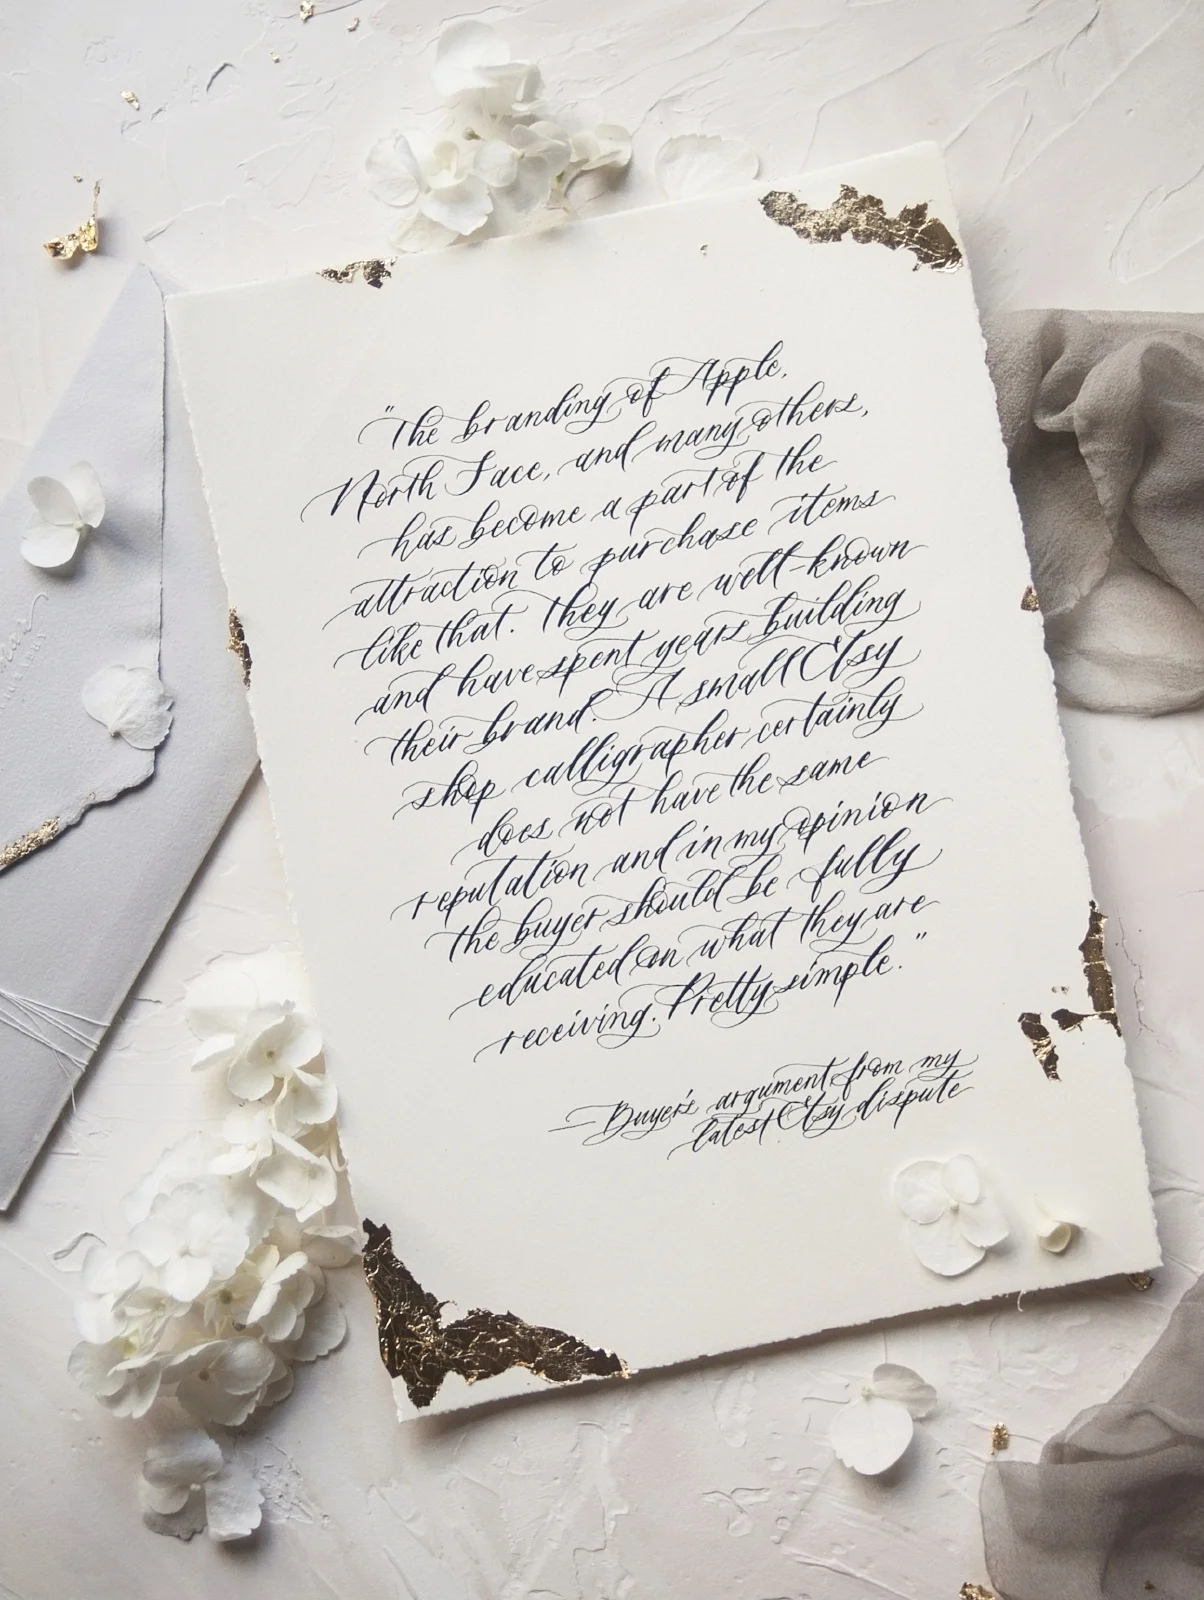 "The branding of Apple,
North Face, and many others,
has become a part of the
attraction to purchase items
like that. They are well-known
and have spent years building
their brand. A small Etsy
shop calligrapher certainly
does not have the same
reputation and in my opinion
the buyer should be fully
educated on what they are
receiving. Pretty simple."
—Buyer's argument from my
latest Etsy dispute